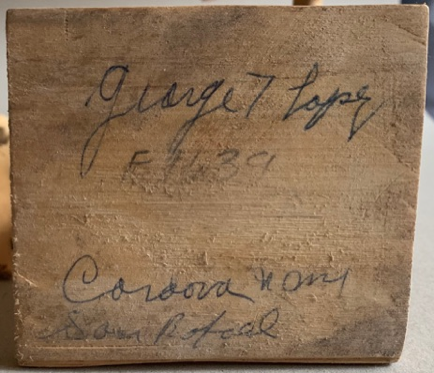 George T Lopez
Cordova n m
San Rafael